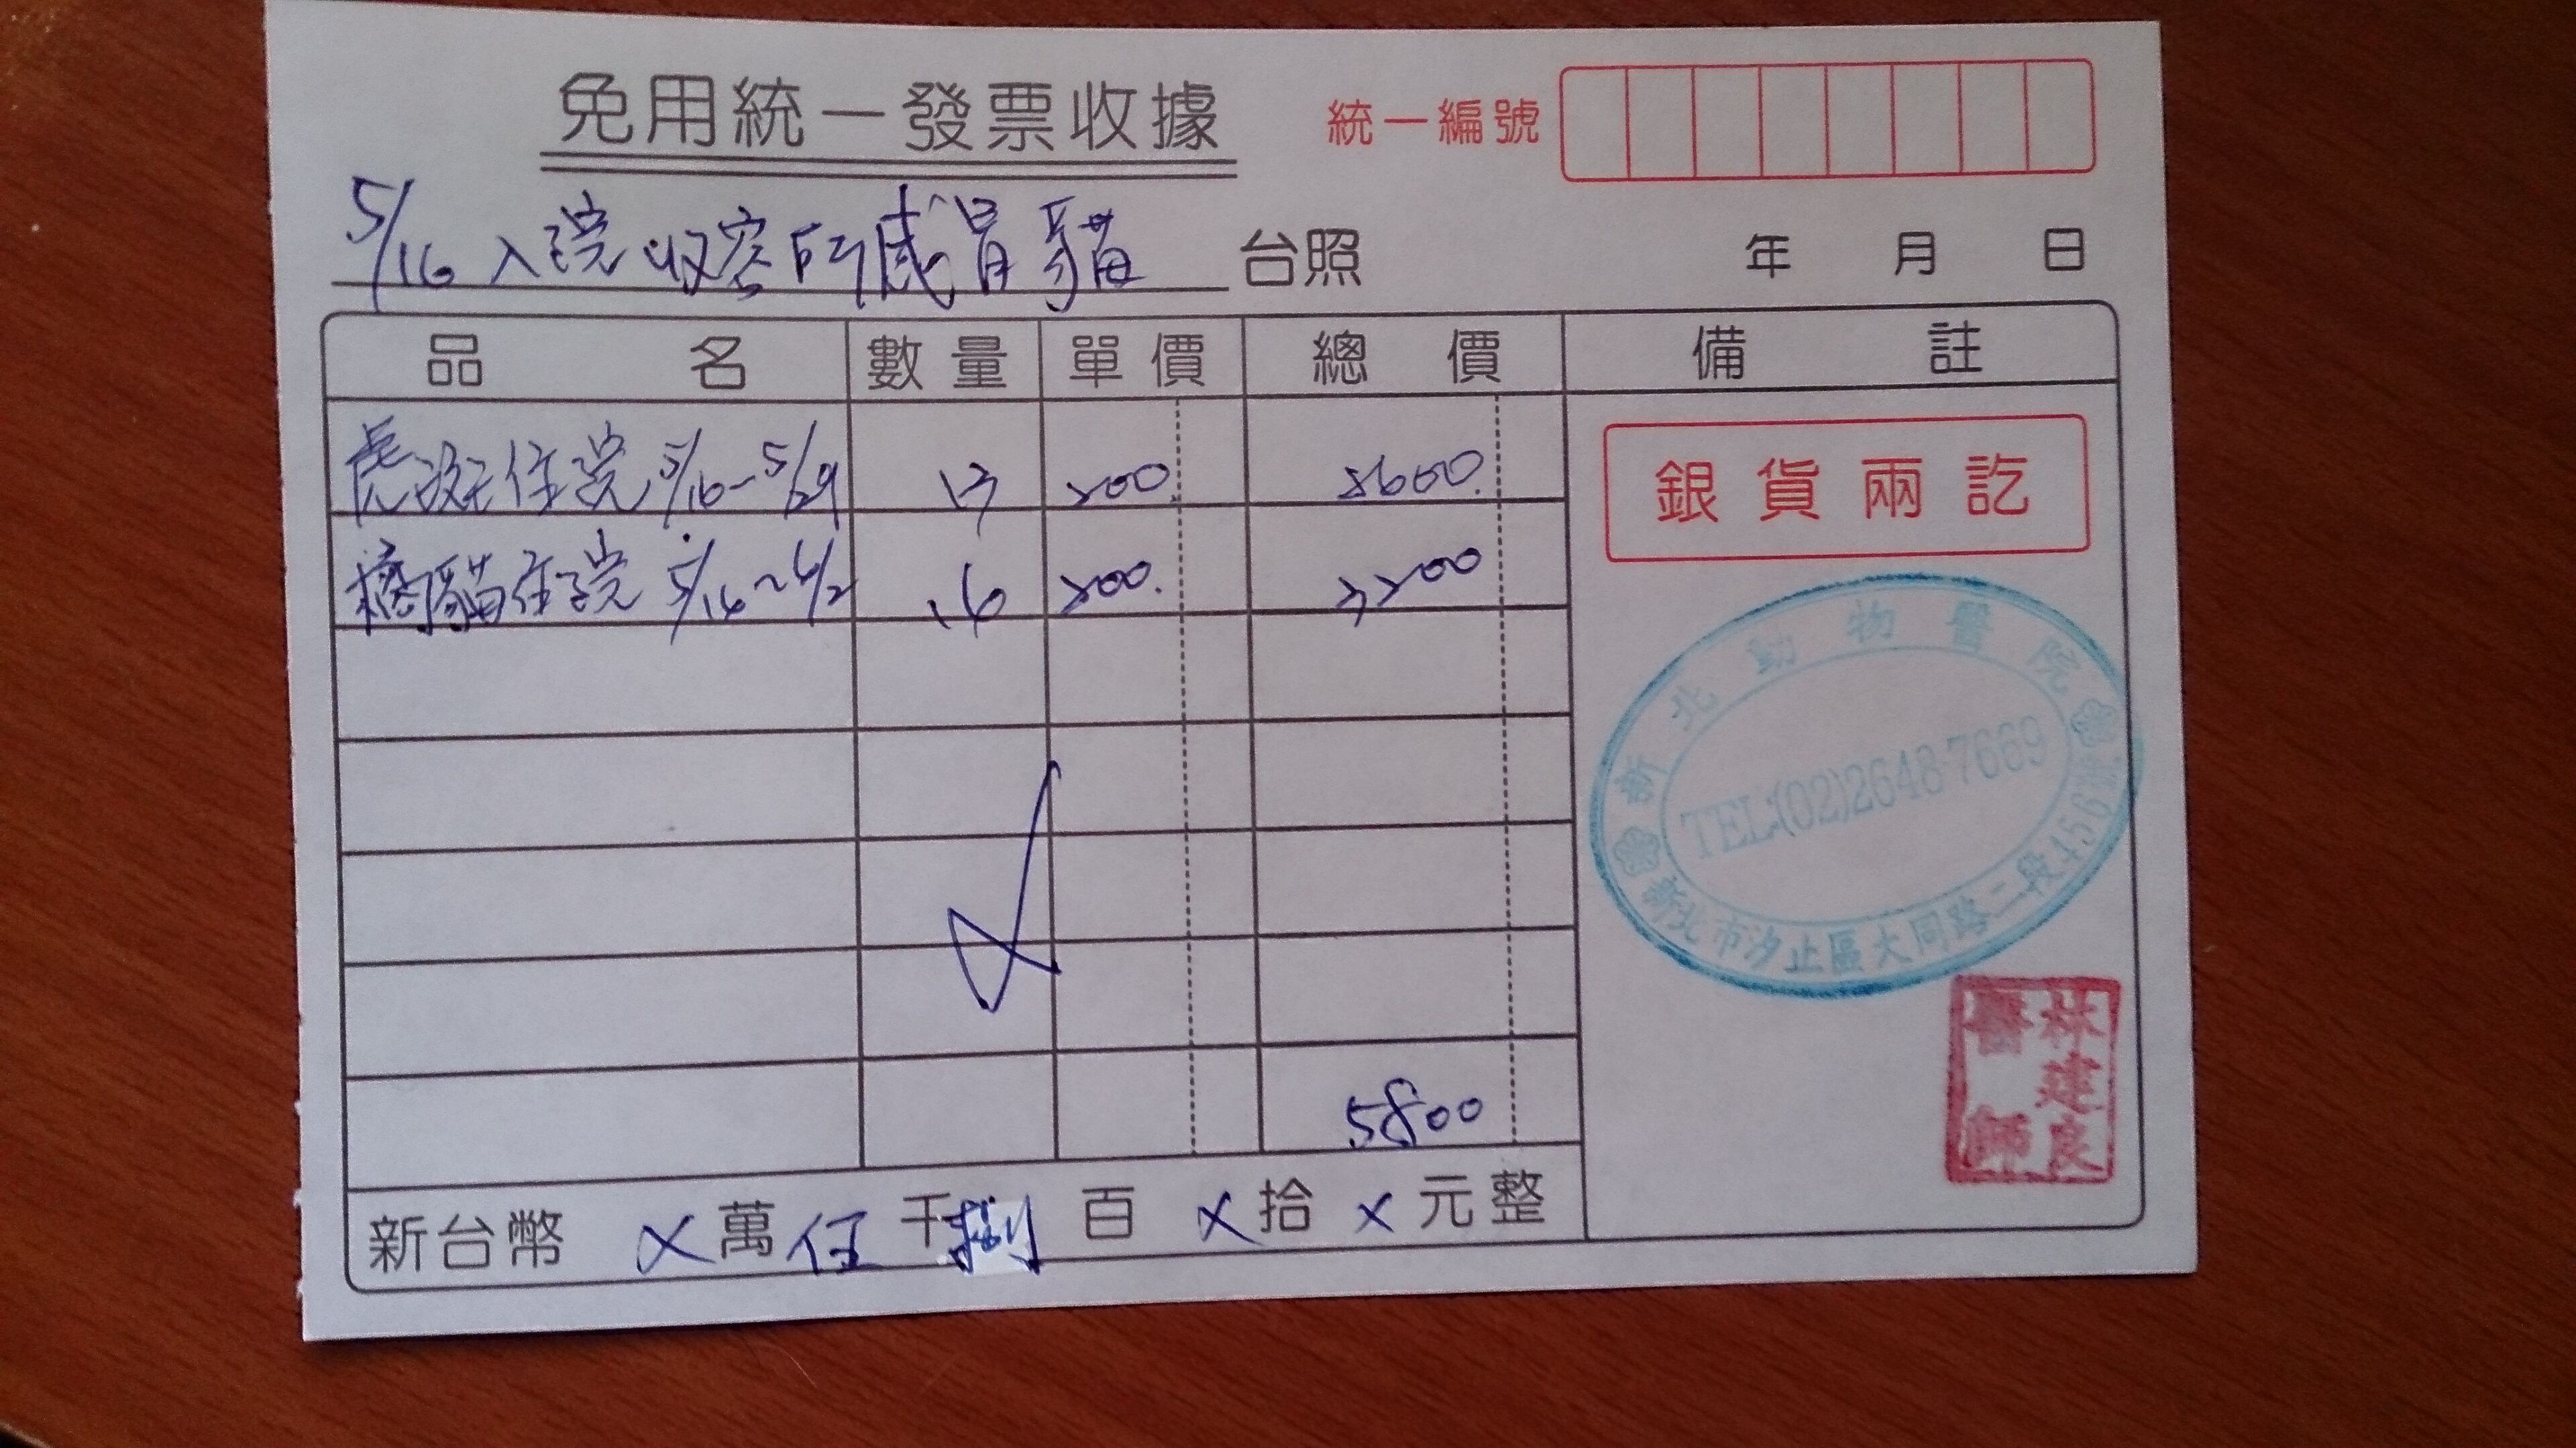 免用統一發票收據
統一編號
5/16 入院收容所感冒貓 台照
年 月 日
品 名 數量 單價 總 價 備 註
虎斑住院 5/16-5/29 13 200 2600.
橘貓住院 5/16~6/2 16 200. 3200
銀貨兩訖
新北動物醫院
TEL:(02)2648-7669
新北市汐止區大同路二段456號
林建良
醫師
5800
新台幣 X 萬 伍 千 捌 百 X 拾 X 元整